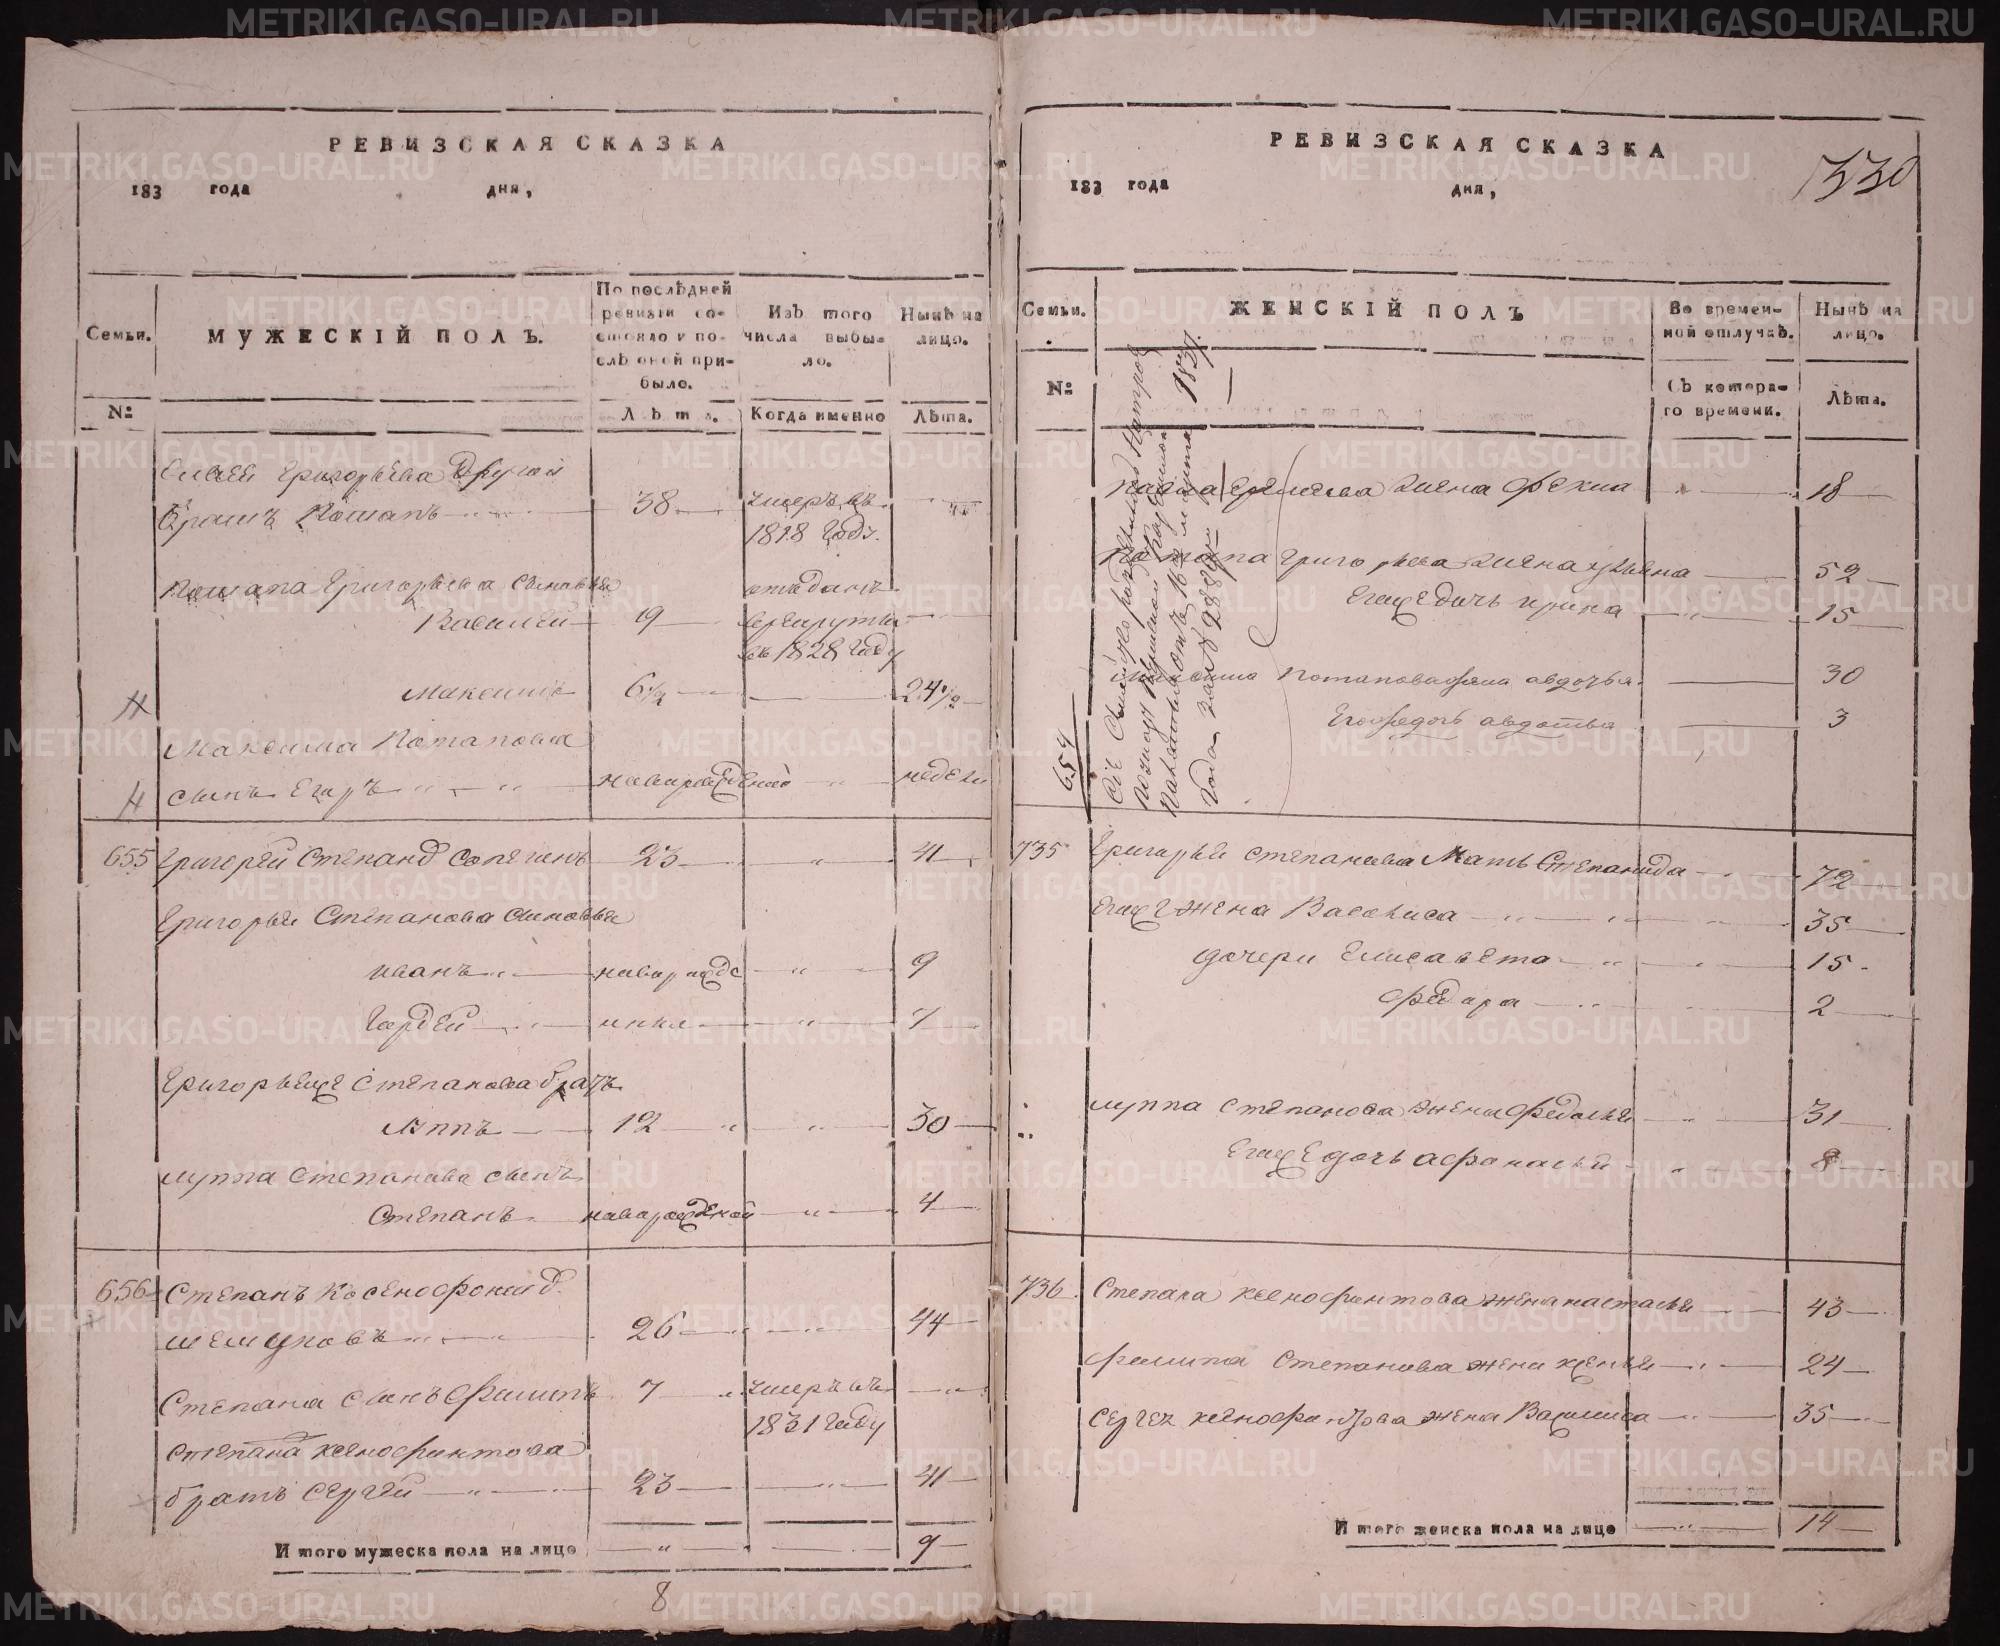 РЕВИЗСКАЯ СКАЗКА
183 года дня,
Семьи.
МУЖЕСКІЙ ПОЛЪ.
По послѣдней
ревизіи со-
стояло и по-
слѣ оной при-
было.
Изъ того
числа выбы-
ло.
Нынѣ на
лицо.
№
Лѣта.
Когда именно
Лѣта.
Григорьева другой
братъ Потапъ 38 умеръ въ
1818 году.
Потапа Григорьева сыновья отъданъ
Василей 19 врекруты
въ 1828 году
Максимъ 6 1/2 24 1/2
Максима Потапова
сынъ Егоръ новорожденой недели
655 Григорей Степано Сопегинъ 23 41
Григорья Степанова сыновья
иванъ новорожде 9
Гордей 7
Григорья Степанова братъ
12 30
луппа Степанова сынъ
Степанъ новорожденой 4
656 Степанъ
26 44
Степана сынъ Филипъ 7 умеръ въ
1831 году
Степана ксенофонтова
братъ Сергей 23 41
Итого мужеска пола на лицо 9
8
РЕВИЗСКАЯ СКАЗКА
183 года дня,
1330
Семьи.
ЖЕНСКІЙ ПОЛЪ
Во времен-
ной отлучкѣ.
Нынѣ на
лицо.
№
Съ котора-
го времени.
Лѣта.
1837.
жена Фекла 18
Потапа Григорьева жена ульяна 52
Егоже дочь ирина 15
Максима Потапова жена авдотья 30
Его дочь авдотья 3
654
735 Григорья Степанова Мать Степанида 72
Егож жена Василиса 35
дочери Елисавета 15
Федора 2
луппа Степанова жена Федосья 31
Егоже дочь афанасья 8
736. Степана ксенофонтова жена настасья 43
филипа Степанова жена 24
Сергея ксенофонтова жена 35
Итого женска пола на лицо 14
METRIKI.GASO-URAL.RU